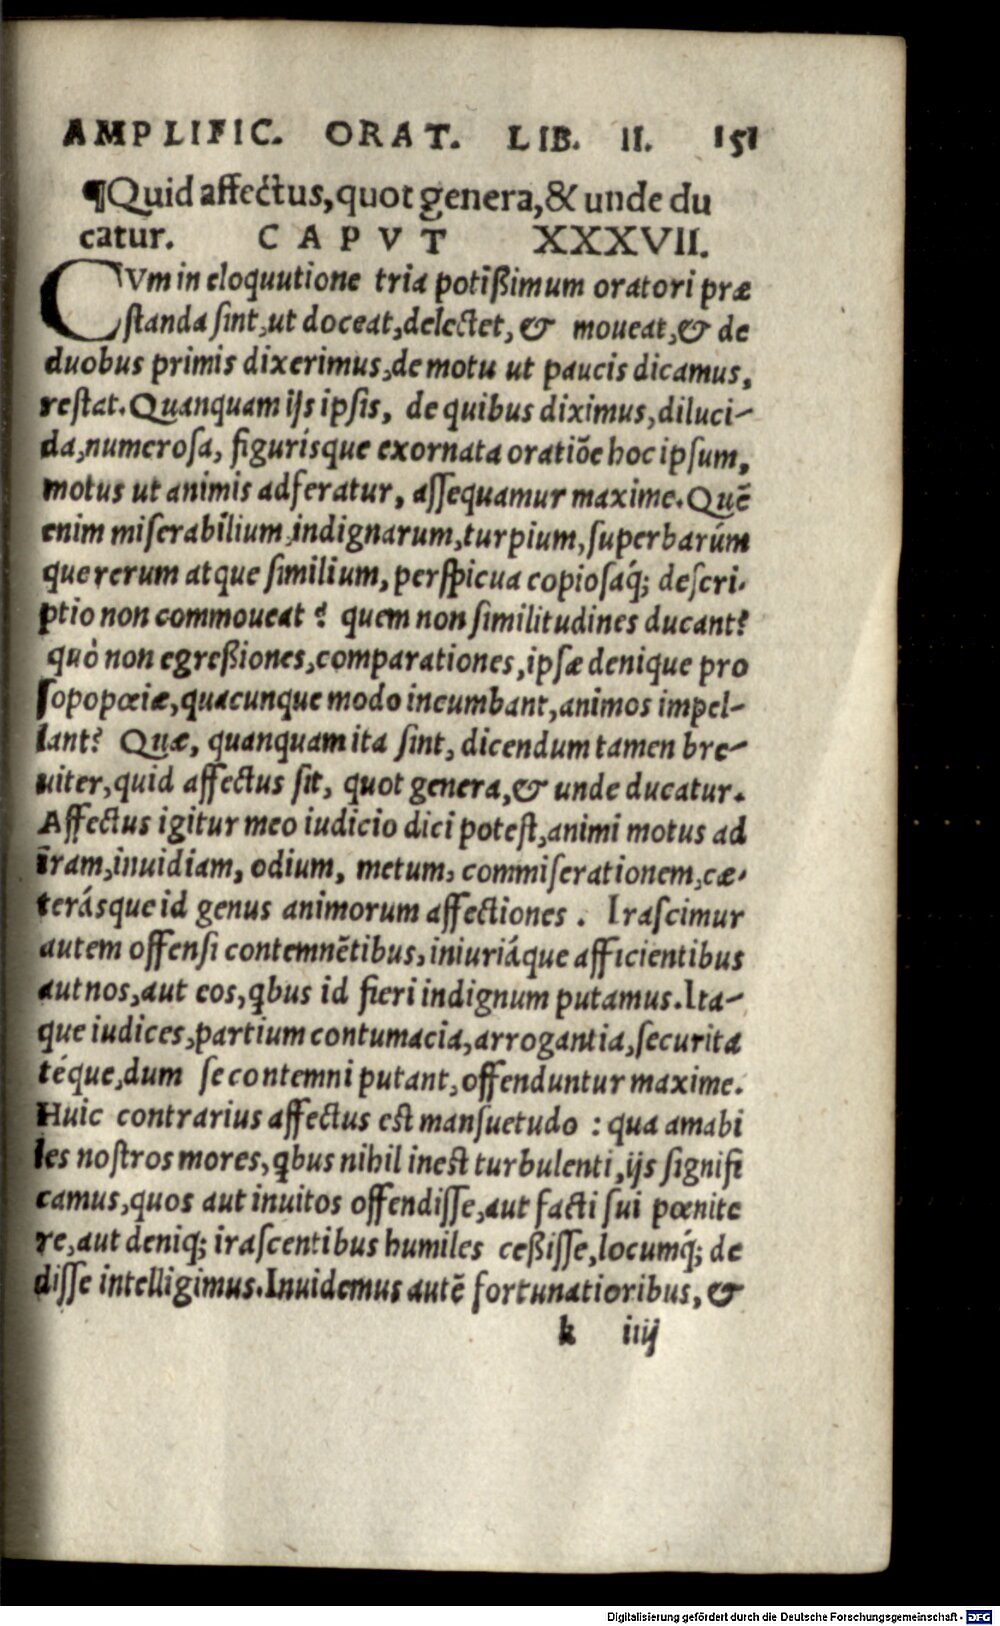 AMPLIFIC. ORAT. LIB. II. 151
¶Quid affectus, quot genera, & unde du
catur. CAPVT XXXVII.
CVm in eloquutione tria potißimum oratori præ
standa sint, ut doceat, delectet, & moueat, & de
duobus primis dixerimus, de motu ut paucis dicamus,
restat. Quanquam ijs ipsis, de quibus diximus, diluci-
da, numerosa, figurísque exornata oratiõe hoc ipsum,
motus ut animis adferatur, assequamur maxime. Quẽ
enim miserabilium, indignarum, turpium, superbarúm
que rerum atque similium, perspicua copiosaq́; descri-
ptio non commoueat? quem non similitudines ducant?
quò non egreßiones, comparationes, ipsæ denique pro
sopopœiæ, quacunque modo incumbant, animos impel-
lant? Quæ, quanquam ita sint, dicendum tamen bre-
uiter, quid affectus sit, quot genera, & unde ducatur.
Affectus igitur meo iudicio dici potest, animi motus ad
iram, inuidiam, odium, metum, commiserationem, cæ-
terásque id genus animorum affectiones. Irascimur
autem offensi contemnẽtibus, iniuriáque afficientibus
aut nos, aut eos, q̃bus id fieri indignum putamus. Ita-
que iudices, partium contumacia, arrogantia, securita
téque, dum se contemni putant, offenduntur maxime.
Huic contrarius affectus est mansuetudo : qua amabi
les nostros mores, q̃bus nihil inest turbulenti, ijs signifi
camus, quos aut inuitos offendisse, aut facti sui pœnite
re, aut deniq; irascentibus humiles ceßisse, locumq́; de
disse intelligimus. Inuidemus autẽ fortunatioribus, &
k iiij
Digitalisierung gefördert durch die Deutsche Forschungsgemeinschaft - DFG